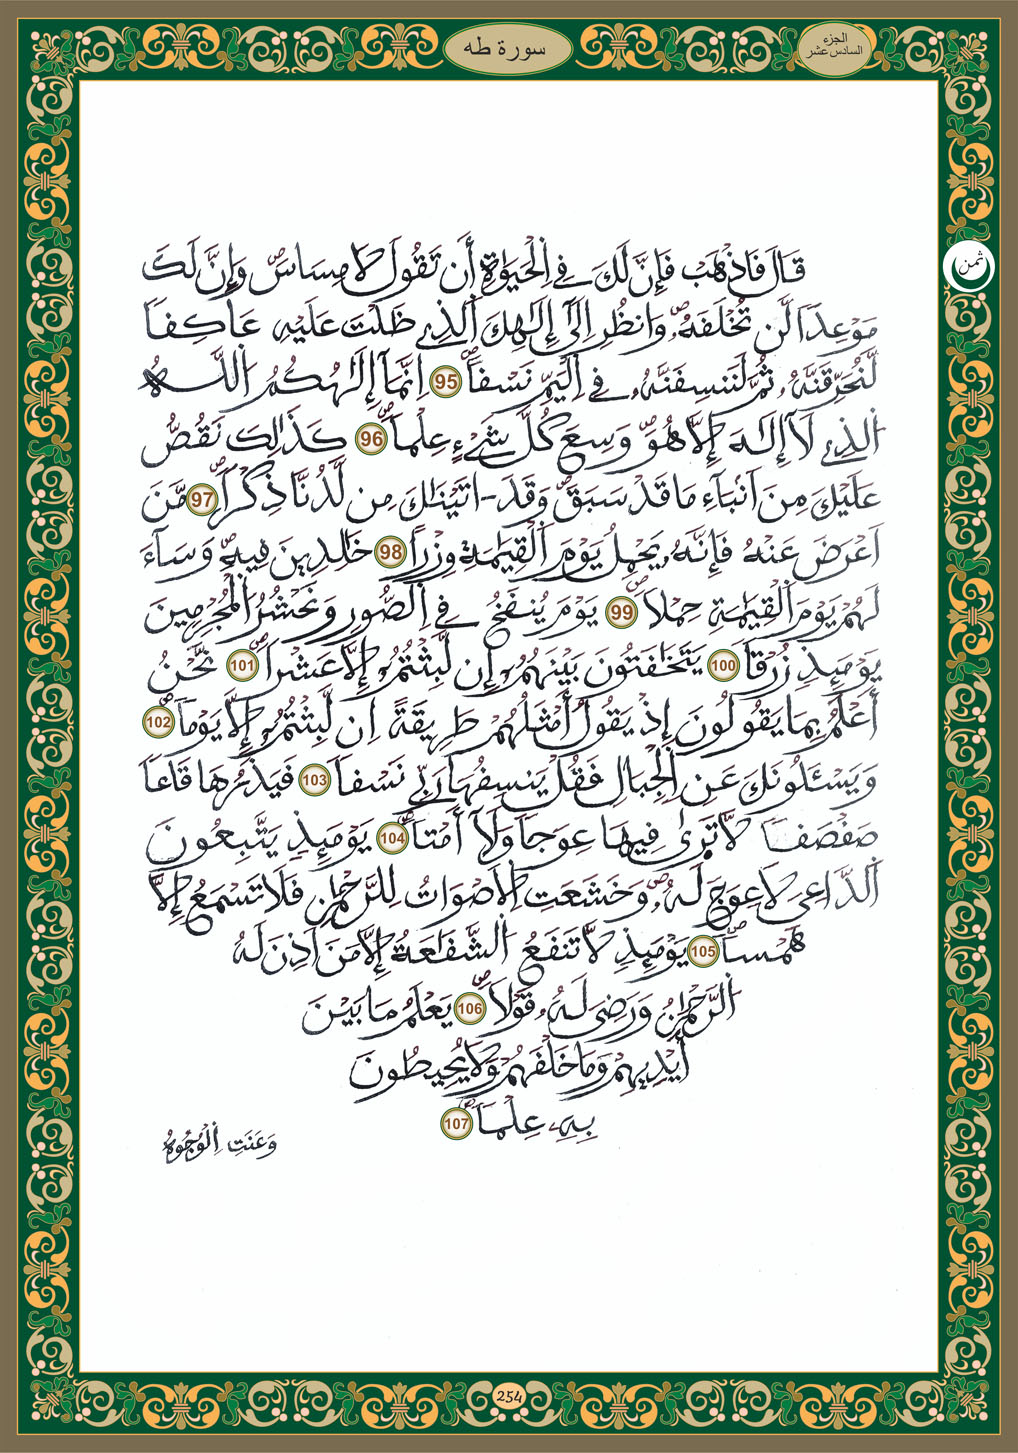 الجزء
السادس عشر
سورة طه
ثمن
قَالَ فَاذْهَبْ فَإِنَّ لَكَ فِے اِ۬لْحَيَوٰةِ أَن تَقُولَ لَا مِسَاسَۖ وَإِنَّ لَكَ
مَوْعِداٗ لَّن تُخْلَفَهُۥۖ وَانظُرِ اِلَىٰٓ إِلَٰهِكَ اَ۬لذِے ظَلْتَ عَلَيْهِ عَاكِفاٗ
لَّنُحَرِّقَنَّهُۥ ثُمَّ لَنَنسِفَنَّهُۥ فِے اِ۬لْيَمِّ نَسْفاًۖ 95 اِنَّمَآ إِلَٰهُكُمُ اُ۬للَّهُ
اُ۬لذِے لَآ إِلَٰهَ إِلَّا هُوَۖ وَسِعَ كُلَّ شَےْءٍ عِلْماٗۖ 96 كَذَٰلِكَ نَقُصُّ
عَلَيْكَ مِنَ اَنۢبَآءِ مَا قَدْ سَبَقَۖ وَقَدَ اٰتَيْنَٰكَ مِن لَّدُنَّا ذِكْراٗۖ 97 مَّنَ
اَعْرَضَ عَنْهُ فَإِنَّهُۥ يَحْمِلُ يَوْمَ اَ۬لْقِيَٰمَةِ وِزْراً 98 خَٰلِدِينَ فِيهِۖ وَسَآءَ
لَهُمْ يَوْمَ اَ۬لْقِيَٰمَةِ حِمْلاٗۖ 99 يَوْمَ يُنفَخُ فِے اِ۬لصُّورِ وَنَحْشُرُ اُ۬لْمُجْرِمِينَ
يَوْمَئِذٖ زُرْقاٗ 100 يَتَخَٰفَتُونَ بَيْنَهُمُۥٓ إِن لَّبِثْتُمُۥٓ إِلَّا عَشْراٗۖ 101 نَّحْنُ
أَعْلَمُ بِمَا يَقُولُونَ إِذْ يَقُولُ أَمْثَلُهُمْ طَرِيقَةً اِن لَّبِثْتُمُۥٓ إِلَّا يَوْماٗۖ 102
وَيَسْـَٔلُونَكَ عَنِ اِ۬لْجِبَالِ فَقُلْ يَنسِفُهَا رَبِّے نَسْفاٗ 103 فَيَذَرُهَا قَاعاٗ
صَفْصَفاٗ لَّا تَرَىٰ فِيهَا عِوَجاٗ وَلَآ أَمْتاٗۖ 104 يَوْمَئِذٖ يَتَّبِعُونَ
اَ۬لدَّاعِيَ لَا عِوَجَ لَهُۥۖ وَخَشَعَتِ اِ۬لَاصْوَاتُ لِلرَّحْمَٰنِ فَلَا تَسْمَعُ إِلَّا
هَمْساٗۖ 105 يَوْمَئِذٖ لَّا تَنفَعُ اُ۬لشَّفَٰعَةُ إِلَّا مَنَ اَذِنَ لَهُ
اُ۬لرَّحْمَٰنُ وَرَضِيَ لَهُۥ قَوْلاٗۖ 106 يَعْلَمُ مَا بَيْنَ
أَيْدِيهِمْ وَمَا خَلْفَهُمْ وَلَا يُحِيطُونَ
بِهِۦ عِلْماٗۖ 107
وَعَنَتِ اِ۬لْوُجُوهُ
254